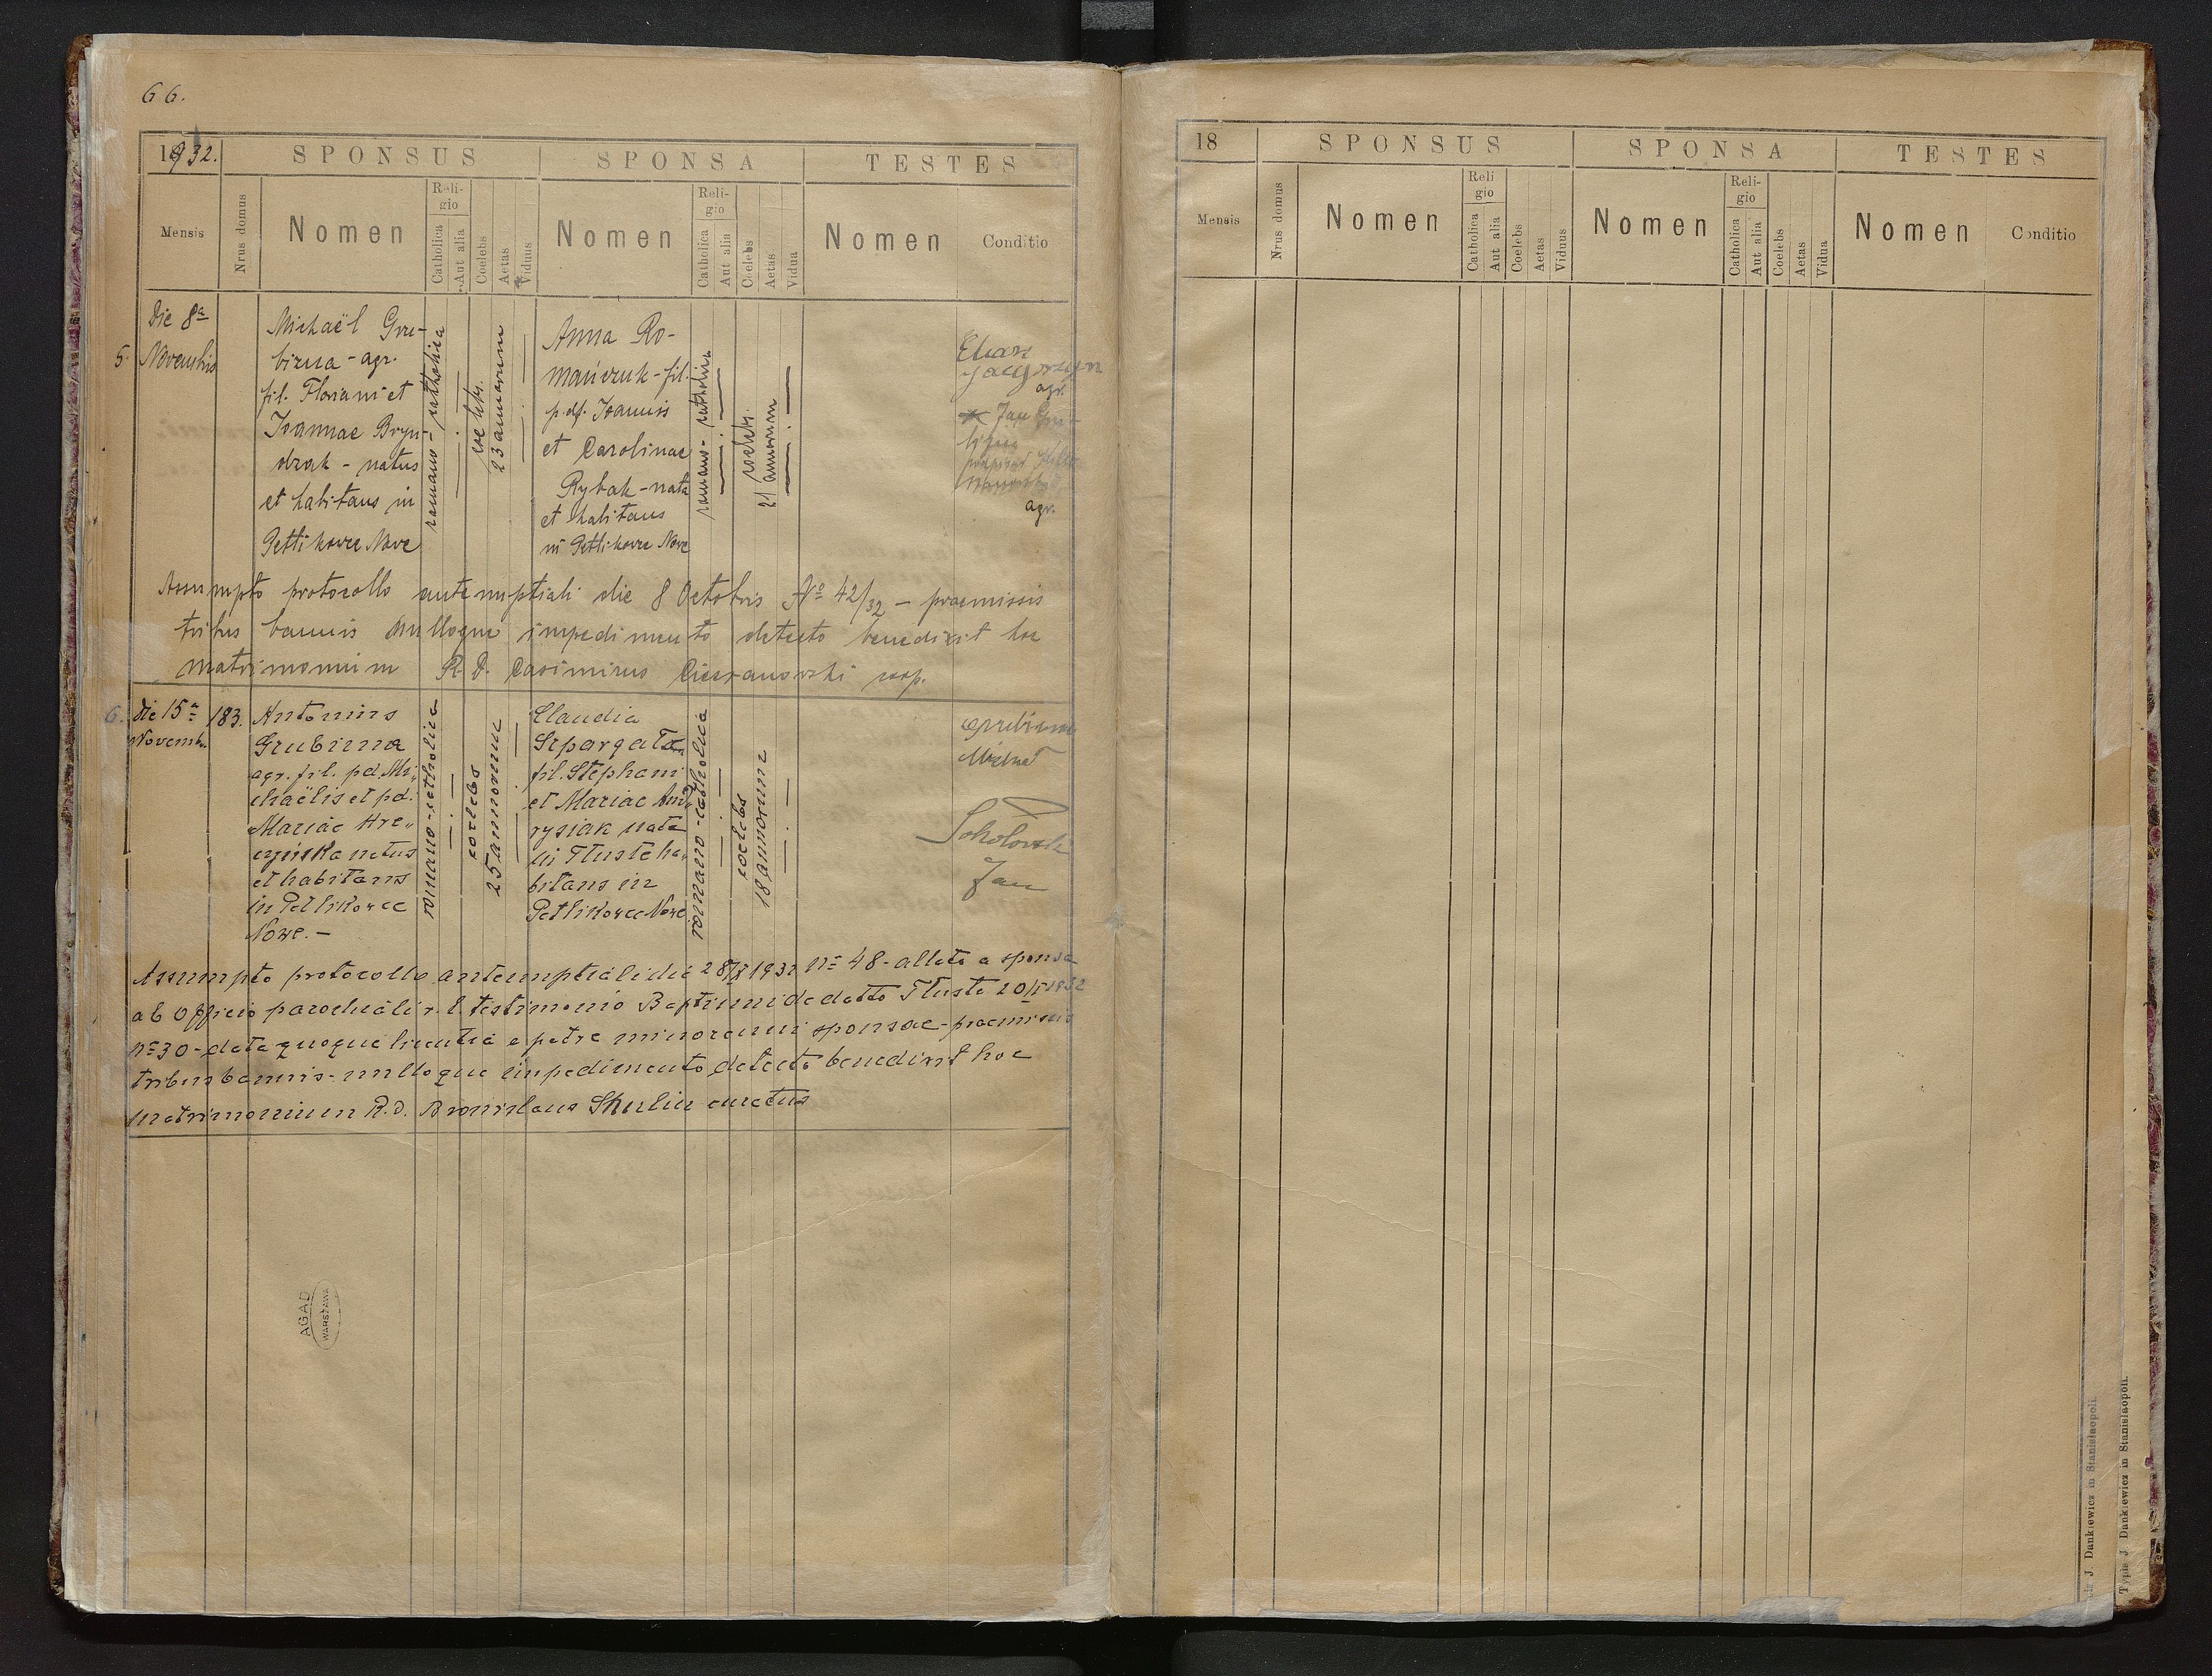 66.
1932.
SPONSUS
SPONSA
TESTES
Mensis
Nrus domus
Nomen
Religio
Catholica
Aut alia
Coelebs
Aetas
Viduus
Nomen
Religio
Catholica
Aut alia
Coelebs
Aetas
Vidua
Nomen
Conditio
5.
Die 8a
Novembris
Michaël Gru-
bizna - agr.
fil. Floriani et
Joannae Bryn-
drak - natus
et habitans in
Petlikowce Nowe
romano-catholica
coelebs.
23 annorum
Anna Ro-
mańczuk - fil.
p. df. Joannis
et Carolinae
Rybak - nata
et habitans
in Petlikowce Nowe
romano-catholica
coelebs.
21 annorum
agr.
Jan
agr.
Assumpto protocollo antenuptiali die 8 Octobris No 42/32 - praemissis
tribus bannis nulloque impedimento detecto benedixit hoc
matrimonium R. D. Casimirus Cieszanowski coop.
6.
Die 15a
Novemb.
183.
Antonius
Grubizna
agr. fil. pd. Mi-
chaëlis et pd.
Mariae Hre-
czyńska natus
et habitans
in Petlikowce
Nowe. -
romano-catholica
coelebs
25 annorum
Claudia
Szpargała
fil. Stephani
et Mariae And
rysiak nata
in Tłuste ha-
bitans in
Petlikowce Nowe.
romano-catholica
coelebs
18 annorum
Grubizna
Michał
Sokołowski
Jan
Assumpto protocollo antenuptiali die 28/X 1932 No 48 - allato a sponsa
ab Officio parochiali r. l. testimonio Baptismi de datto Tłuste 20/X 1932
No 30 - data quoque licentia a patre minorenni sponsae - praemissis
tribus bannis - nulloque impedimento detecto benedixit hoc
matrimonium R. D. Bronislaus Skulin curatus
AGAD
WARSZAWA
18
SPONSUS
SPONSA
TESTES
Mensis
Nrus domus
Nomen
Religio
Catholica
Aut alia
Coelebs
Aetas
Viduus
Nomen
Religio
Catholica
Aut alia
Coelebs
Aetas
Vidua
Nomen
Conditio
J. Dankiewicz in Stanislaopoli.
Typis J. Dankiewicz in Stanislaopoli.